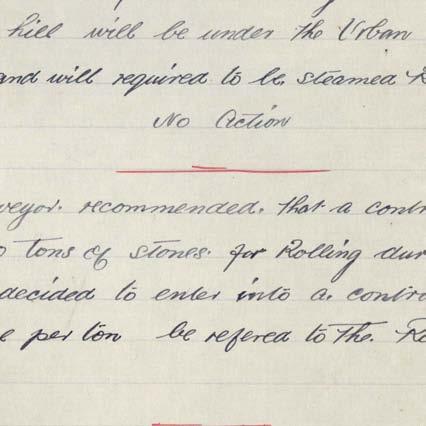 hill will be under the Urban
and will required to be steamed R
No Action
veyor. recommended. that a contr
o tons of stones. for Rolling dur
decided to enter into a. contra
e per ton be refered to the. Ro